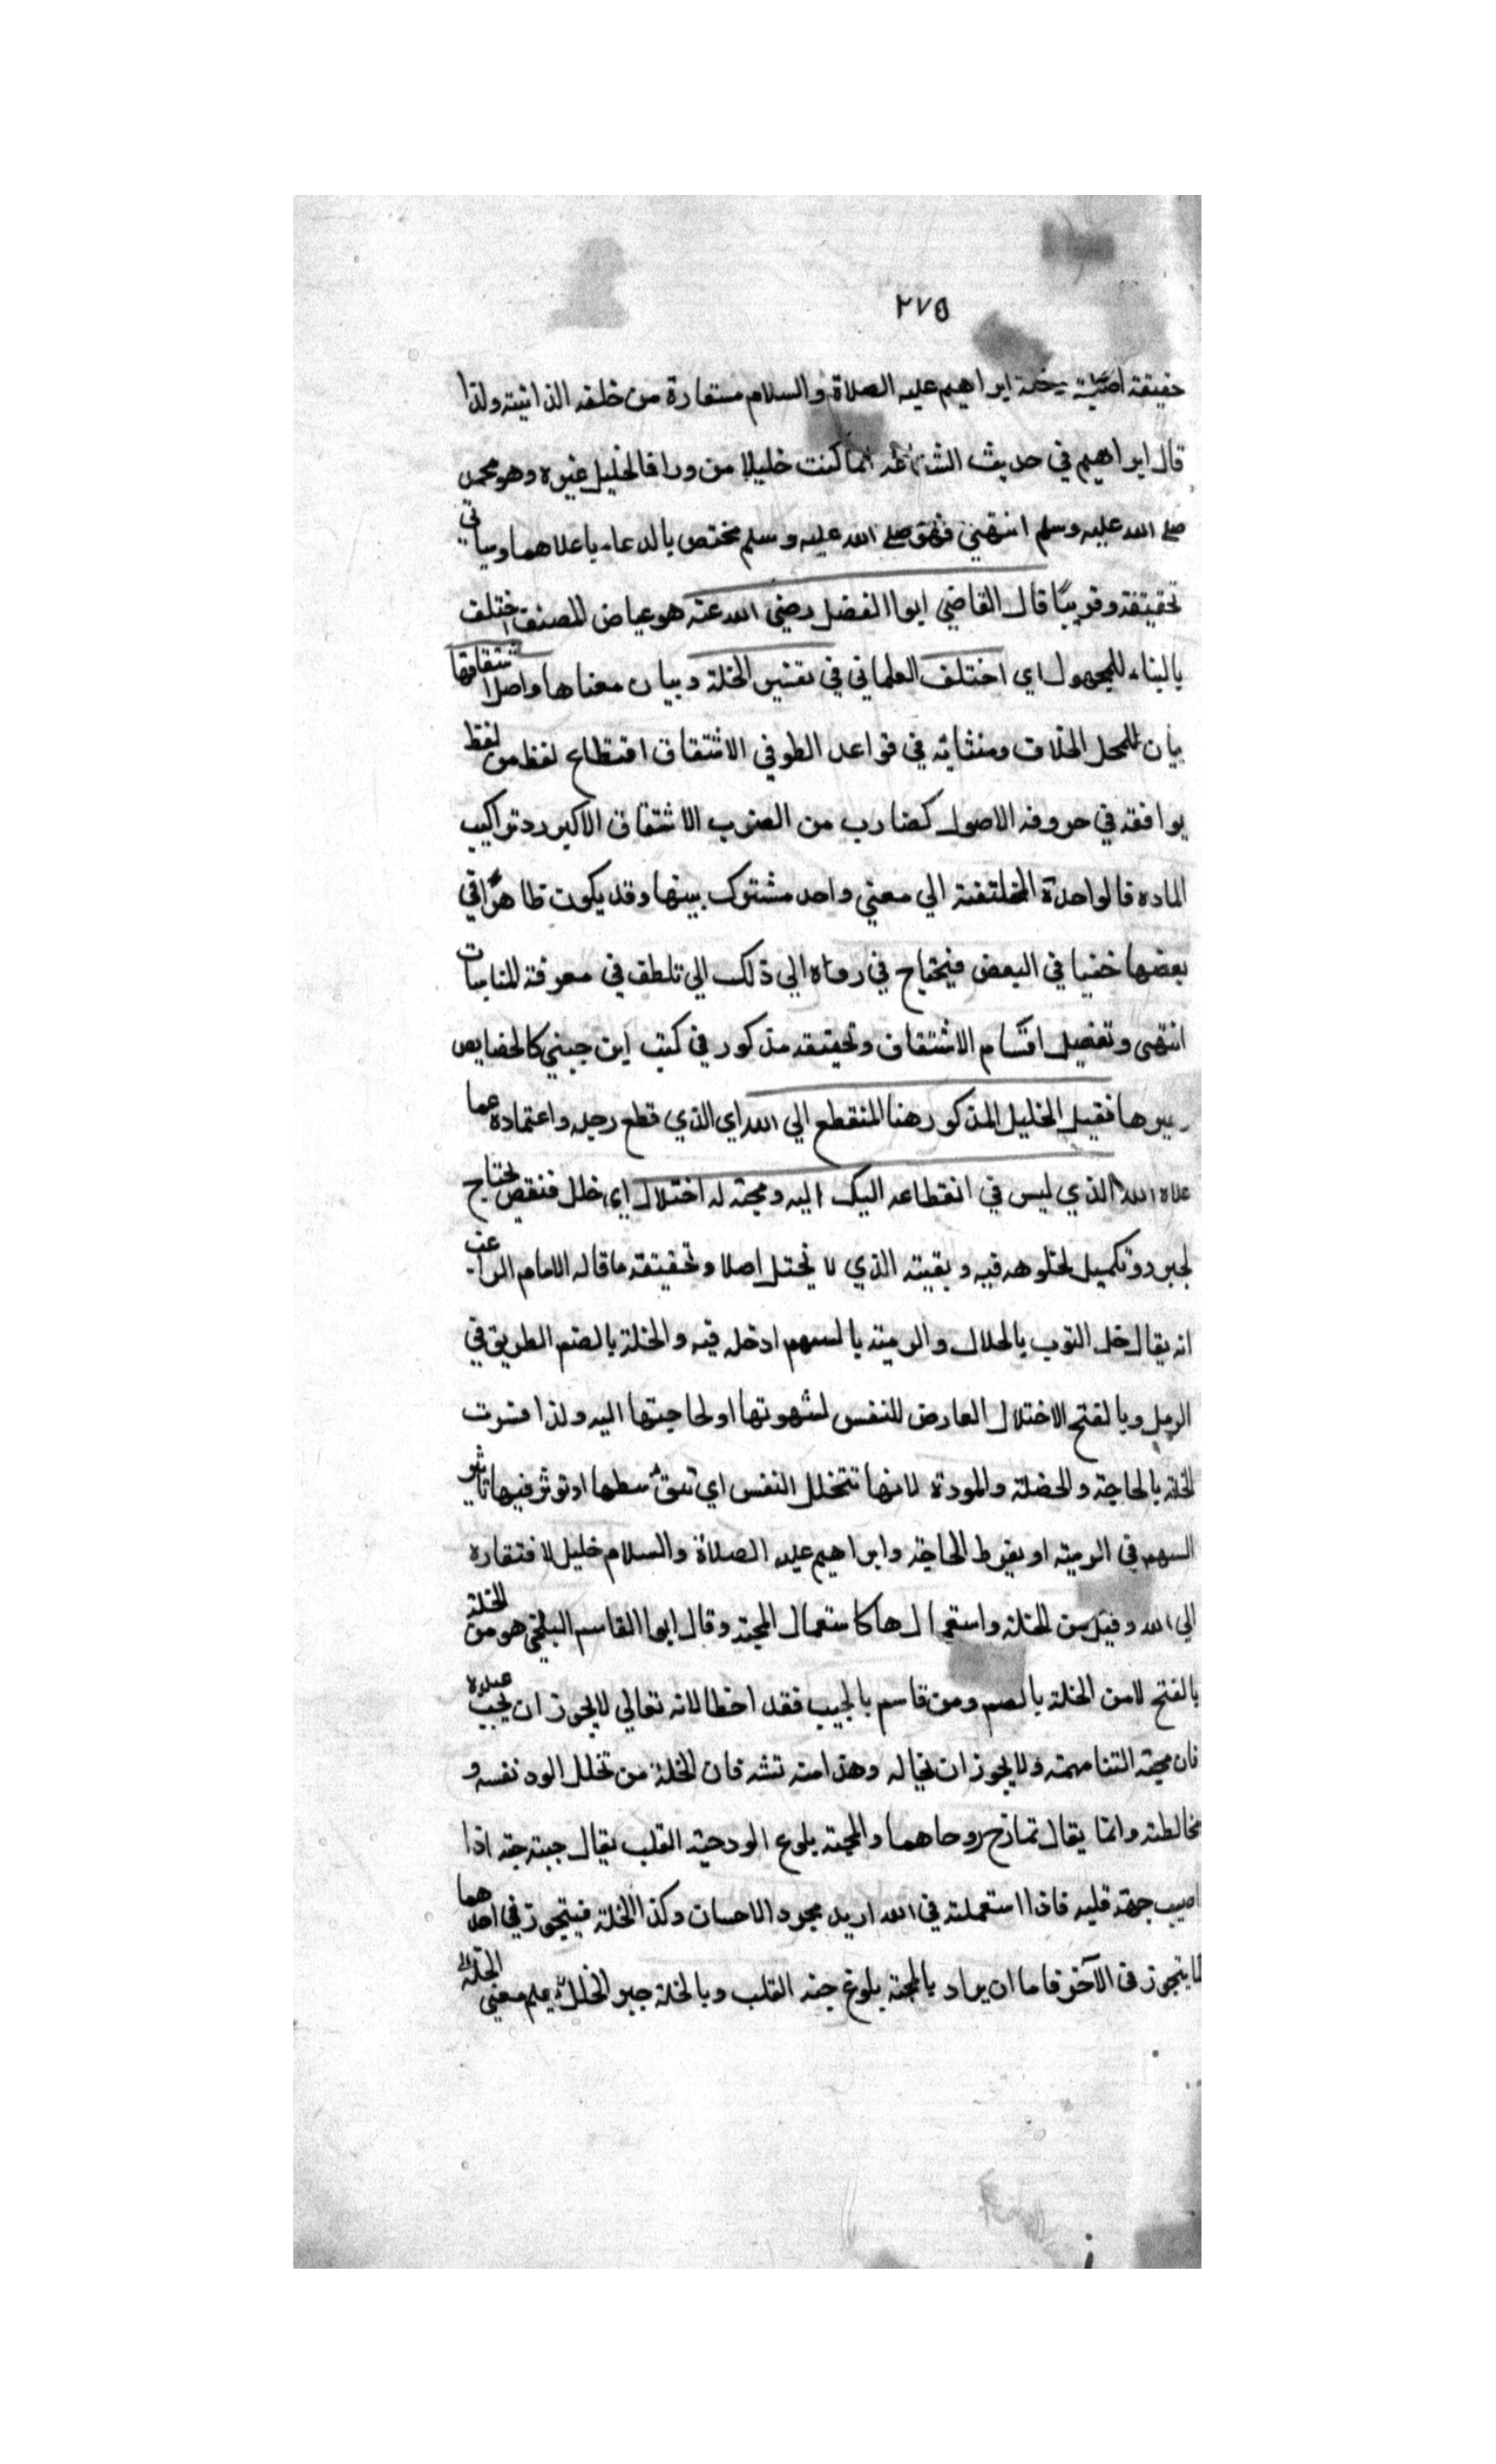 ٢٧٥
حقيقة اصلية ابراهيم عليه الصلاة والسلام مستعارة من خلفه الذاتية ولذا
قال ابراهيم في حديث انما كنت خليلا من ورا فالخليل غيره وهو محمد
صلى الله عليه وسلم انتهى فهو صلى الله عليه وسلم مختص بالدعا باعلاهما وسياتي
تحقيقة وقريبًا قال القاضي ابوا الفضل رضي الله عنه هو عياض المصنف اختلف
بالبناء للمجهول اي اختلف العلما في في تفسير الخلة وبيان معناها واصل اشتقاقها
بيان للمحل الخلاف ومنشاته في قواعد الطوفي الاشتقاق اقتطاع لفظ من لفظ
يوافقه في حروفه الاصول كضارب من الضرب الاشتقاق الاكبر رد تراكيب
الماده فالواحدة المختلفة الي معني واحد مشترك بينها وقد يكون ظاهرًا في
بعضها خفيا في البعض فيحتاج في رداه الي ذلك الي تلطف في معرفة المناسبات
انتهى وتفصيل اقسام الاشتقاق وتحقيقه مذكور في كتب ابن جيني كالخصايص
وغيرها فقيل الخليل المذكور هنا المنقطع الي الله اي الذي قطع رجله واعتماده عما
عداه الله الذي ليس في انقطاعه اليك اليه ومحبته له اختلال اي خلل فنقص يحتاج
لجبر وتكميل لخلوهه فيه وبقيته الذي لا يختل اصلا وتحقيقه ما قاله الامام الراغب
انه يقال خل الثوب بالخلال والرمية بالسهم ادخله فيه والخلة بالضم الطريق في
الرمل وبالفتح الاختلال العارض للنفس لشهوتها او لحاجتها اليه ولذا فسرت
الخلة بالحاجة والخصلة والمودة لانها تتخلل النفس اي وسطها اوتوثر فيها تاثير
السهم في الرمية او بفرط الحاجة وابراهيم عليه الصلاة والسلام خليل لافتقاره
الي الله وقيل من الخلة واستعمالها كاستعمال المحبة وقال ابوا القاسم البلخي هو من الخلة
بالفتح لامن الخلة بالضم ومن قاسه بالحبيب فقد اخطا لانه تعالي لايجوز ان يحب عبده
فان محبة الثنا منه ولايجوز ان يخاله وهذا منه تشه فان الخلة من تخلل الود نفسه و
مخالطته وانما يقال تمازج روحاهما والمحبة بلوغ الود حبة القلب يقال حببته حبة اذا
اصيب حبة قلبه فاذا استعملت في الله اريد مجرد الاحسان وكذا الخلة فيتجوز في احدهما
ما يتجوز في الآخر فاما ان يراد بالمحبة بلوغ حبة القلب وبالخلة جبر الخلل يعلم معني الخلة